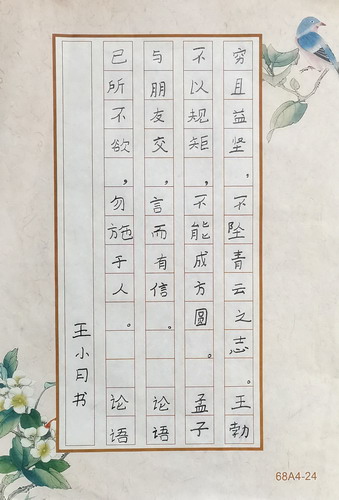 穷且益坚，不坠青云之志。王勃
不以规矩，不能成方圆。孟子
与朋友交，言而有信。论语
己所不欲，勿施于人。论语
王小月书
68A4-24